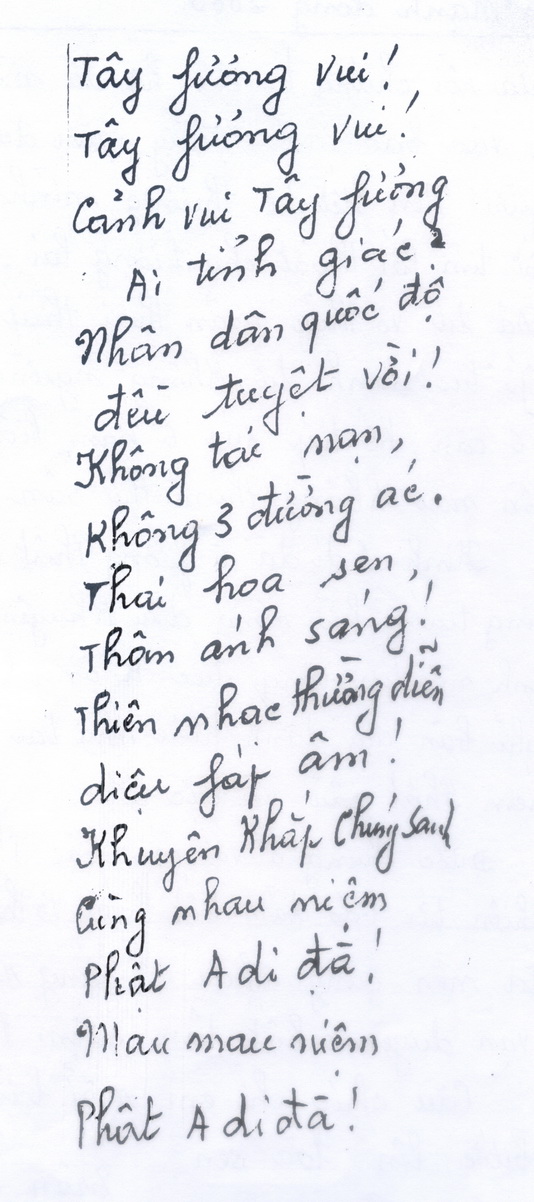 Tây fương vui!
Tây fương vui!
Cảnh vui Tây fương
Ai tỉnh giác?
Nhân dân quốc độ
đều tuyệt vời!
Không tai nạn,
Không 3 đường ác.
Thai hoa sen,
Thân ánh sáng!
Thiên nhạc thường diễn
diệu fáp âm!
Khuyên Khắp Chúng Sanh
Cùng nhau niệm
Phật A di đà!
Mau mau niệm
Phật A di đà!